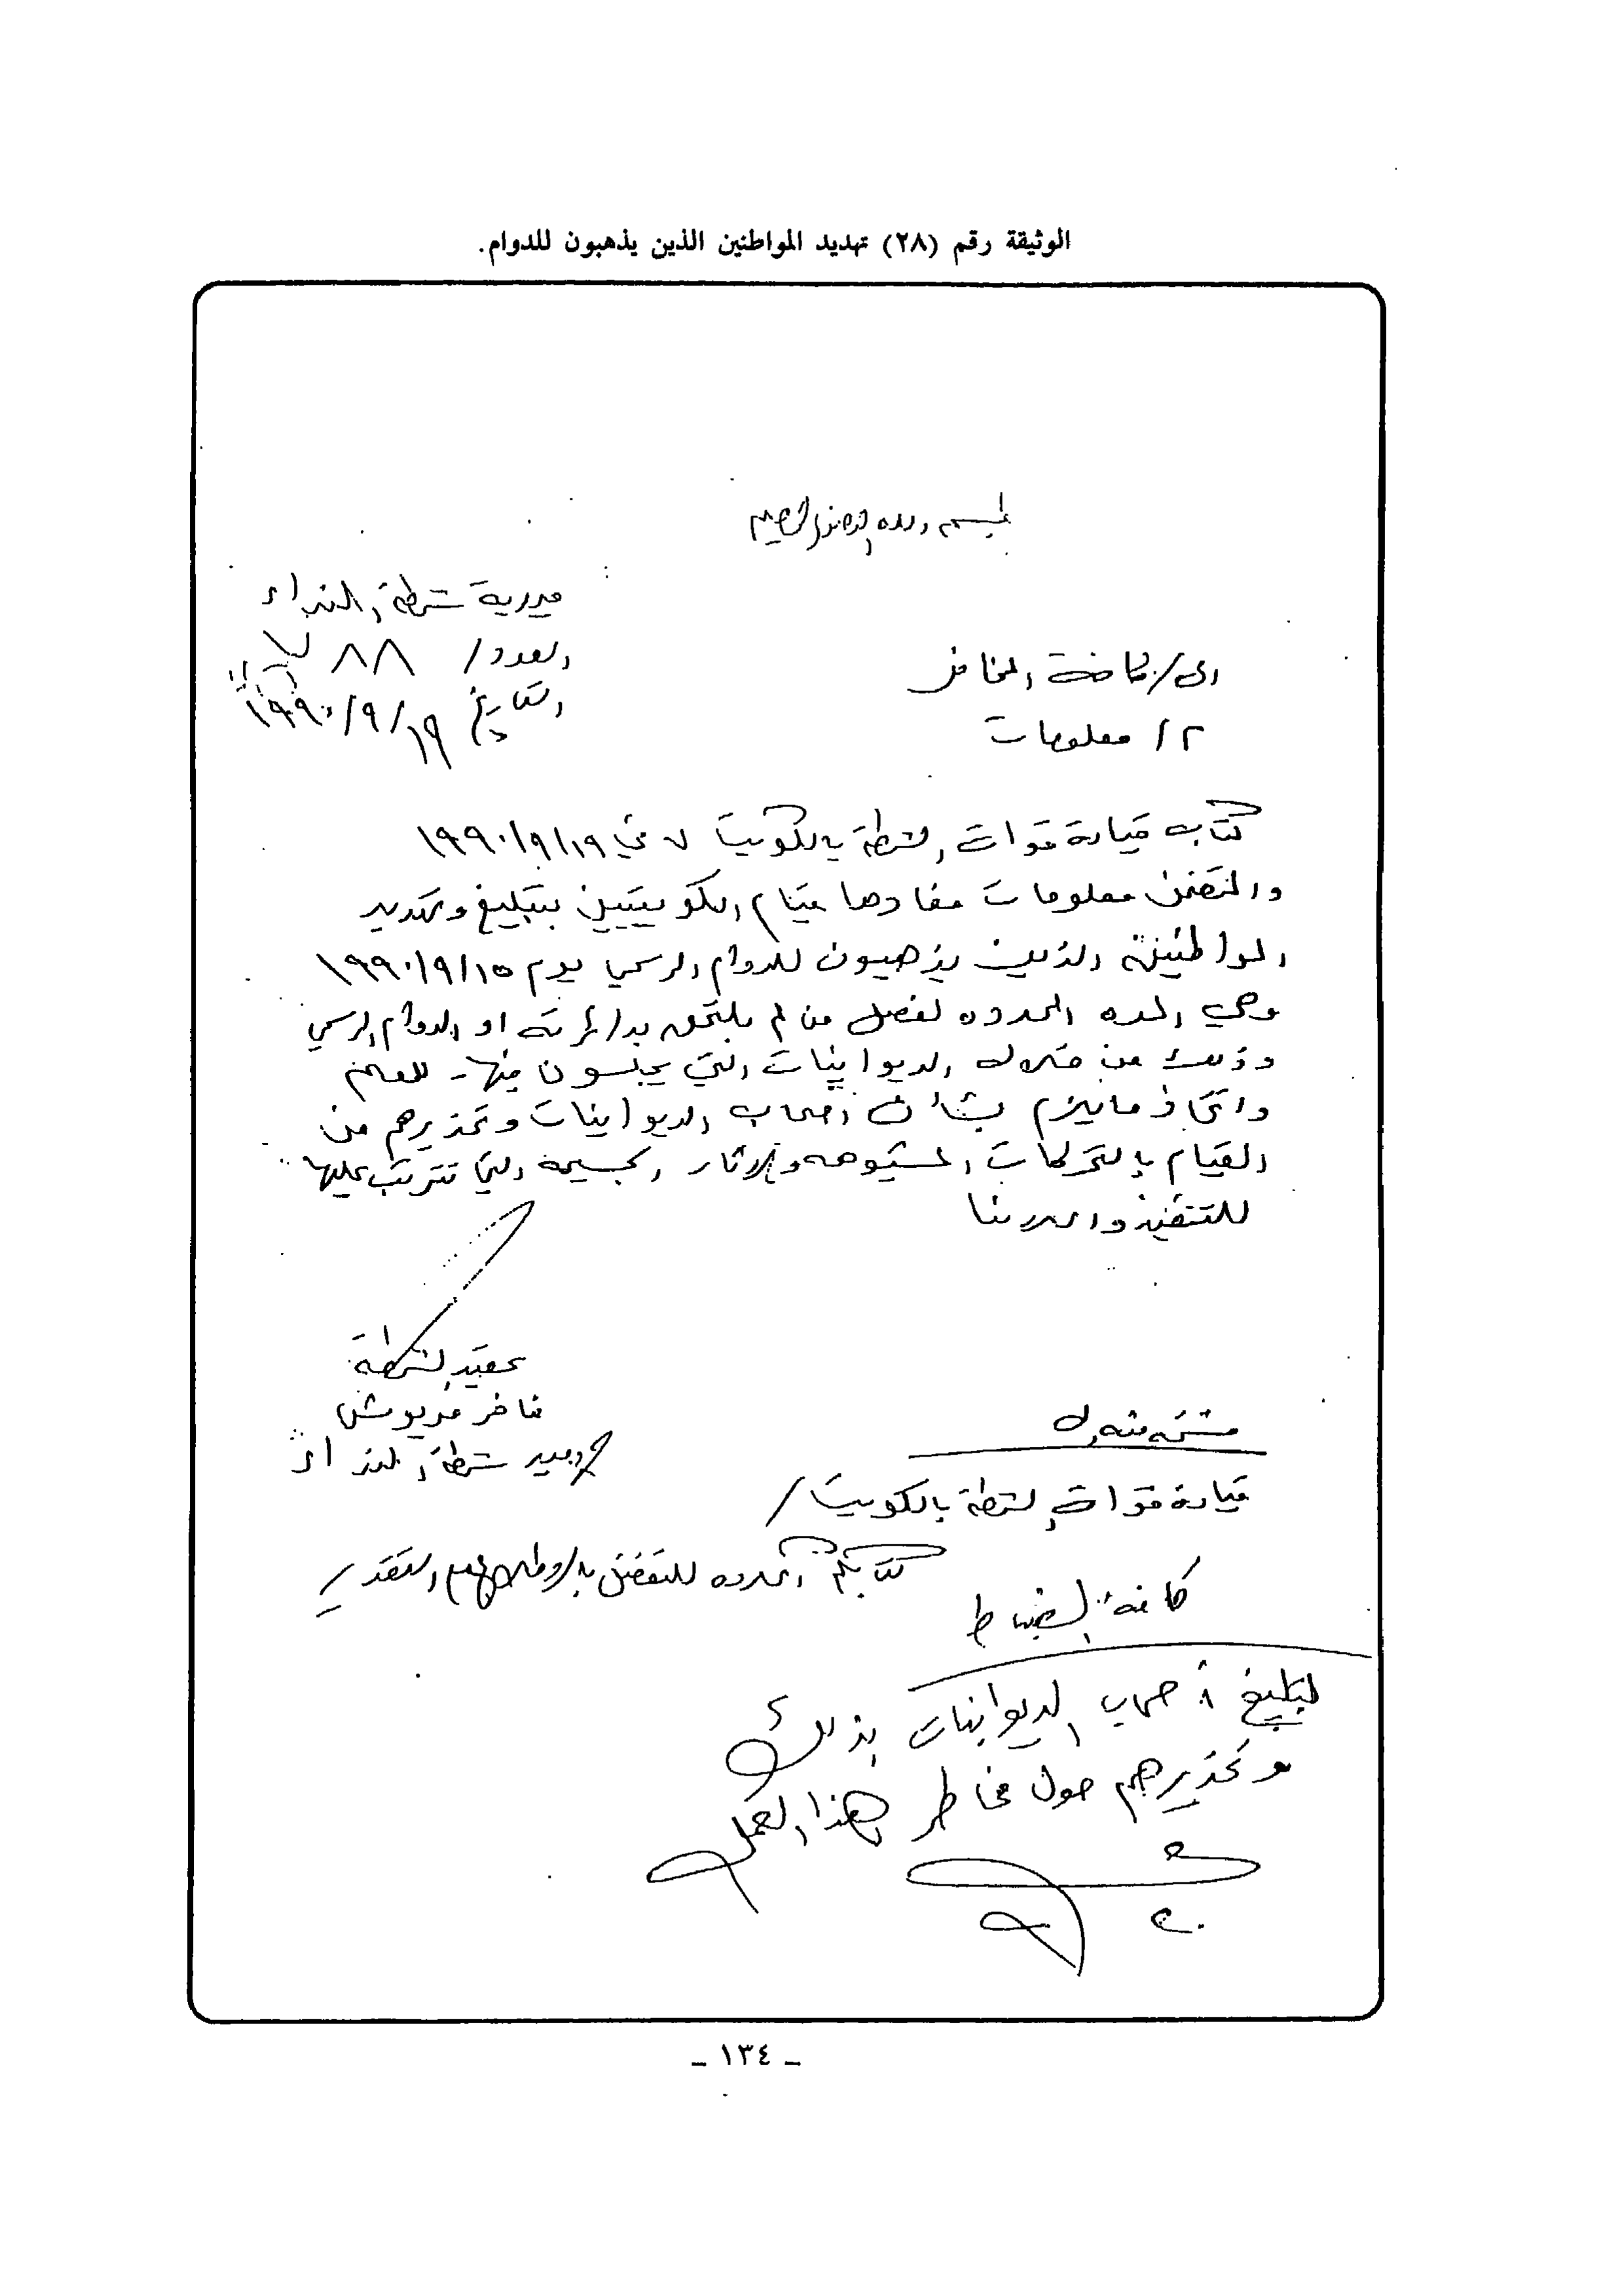 الوثيقة رقم (٢٨) تهديد المواطنين الذين يذهبون للدوام.
بسم الله الرحمن الرحيم
مديرية شرطة النداء
العدد / ٨٨
التاريخ ١٩ /٩/ ١٩٩٠
الى / كافة المخافر
م / معلومات
كتاب قيادة قوات الشطة بالكويت ٧ في ١٩٩٠/٩/١٩
والمتضمن معلومات مفادها قيام الكويتيين بتبليغ وتهديد
المواطنين الذين يذهبون للدوام الرسمي يوم ١٩٩٠/٩/١٥
وهي المده المحدده لفصل من لم يلتحق بدائرته او الدوام الرسمي
وذلك من خلال الديوانيات التي يجلسون فيها - للعلم
واتخاذ مايلزم بشأن اصحاب الديوانيات وتحذيرهم من
القيام بالتحركات المشبوهه والاثار الجسيمة التي تترتب عليها
للتنفيذ واعلامنا
عقيد الشرطة
فاخر
مدير شرطة النداء
نسخه منه الى
قيادة قوات الشرطة بالكويت /
كتابكم اعلاه للتفضل بالاطلاع مع التقدير
كافة الضباط
لتبليغ أصحاب الديوانيات بذلك
وتحذيرهم حول مخاطر هذا العمل
ـ ١٣٤ ـ